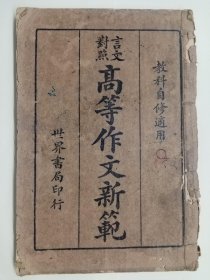 教科自修適用
言文
對照
高等作文新範
世界書局印行